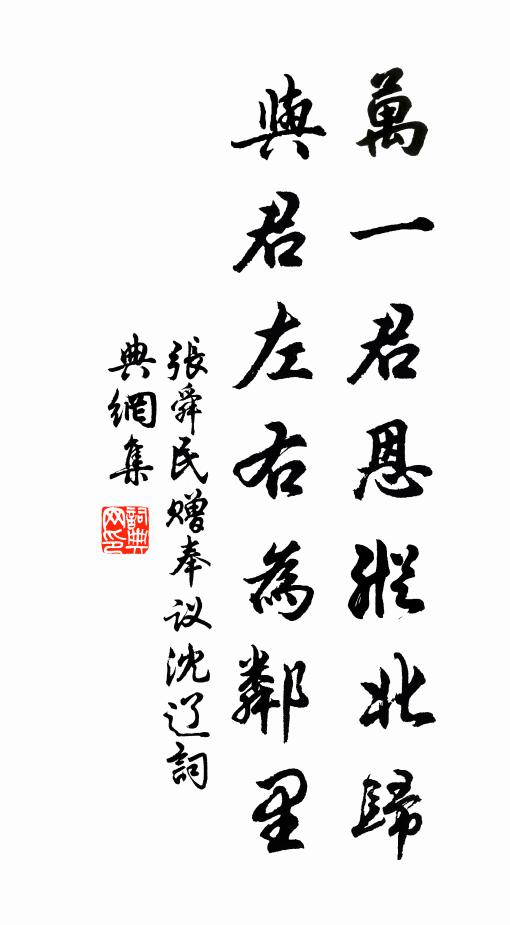 萬一君恩縱北歸
與君左右為鄰里
張舜民贈奉议沈辽詞
典網集
詞典网印